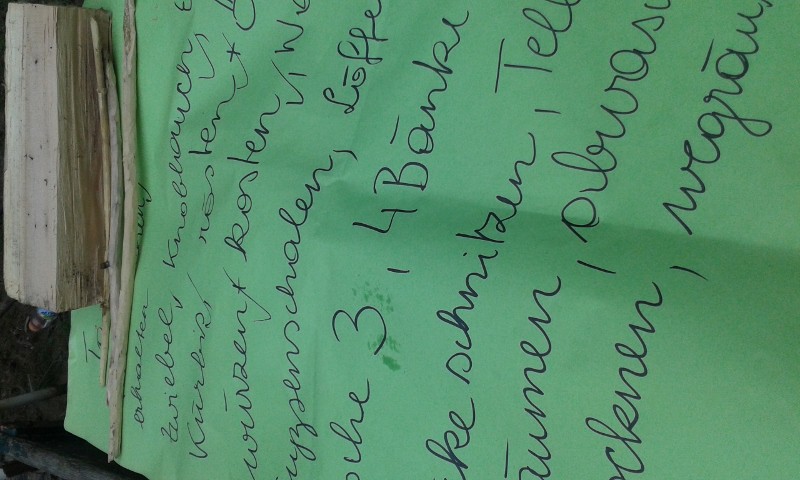 Zwiebel, Knoblauch,
Kürbis, rösten, +
würzen + kosten, We
zenschalen, Löffe
oche 3, 4 Bänke
ke schnitzen, Tell
äumen, abwas
ocknen, wegräu